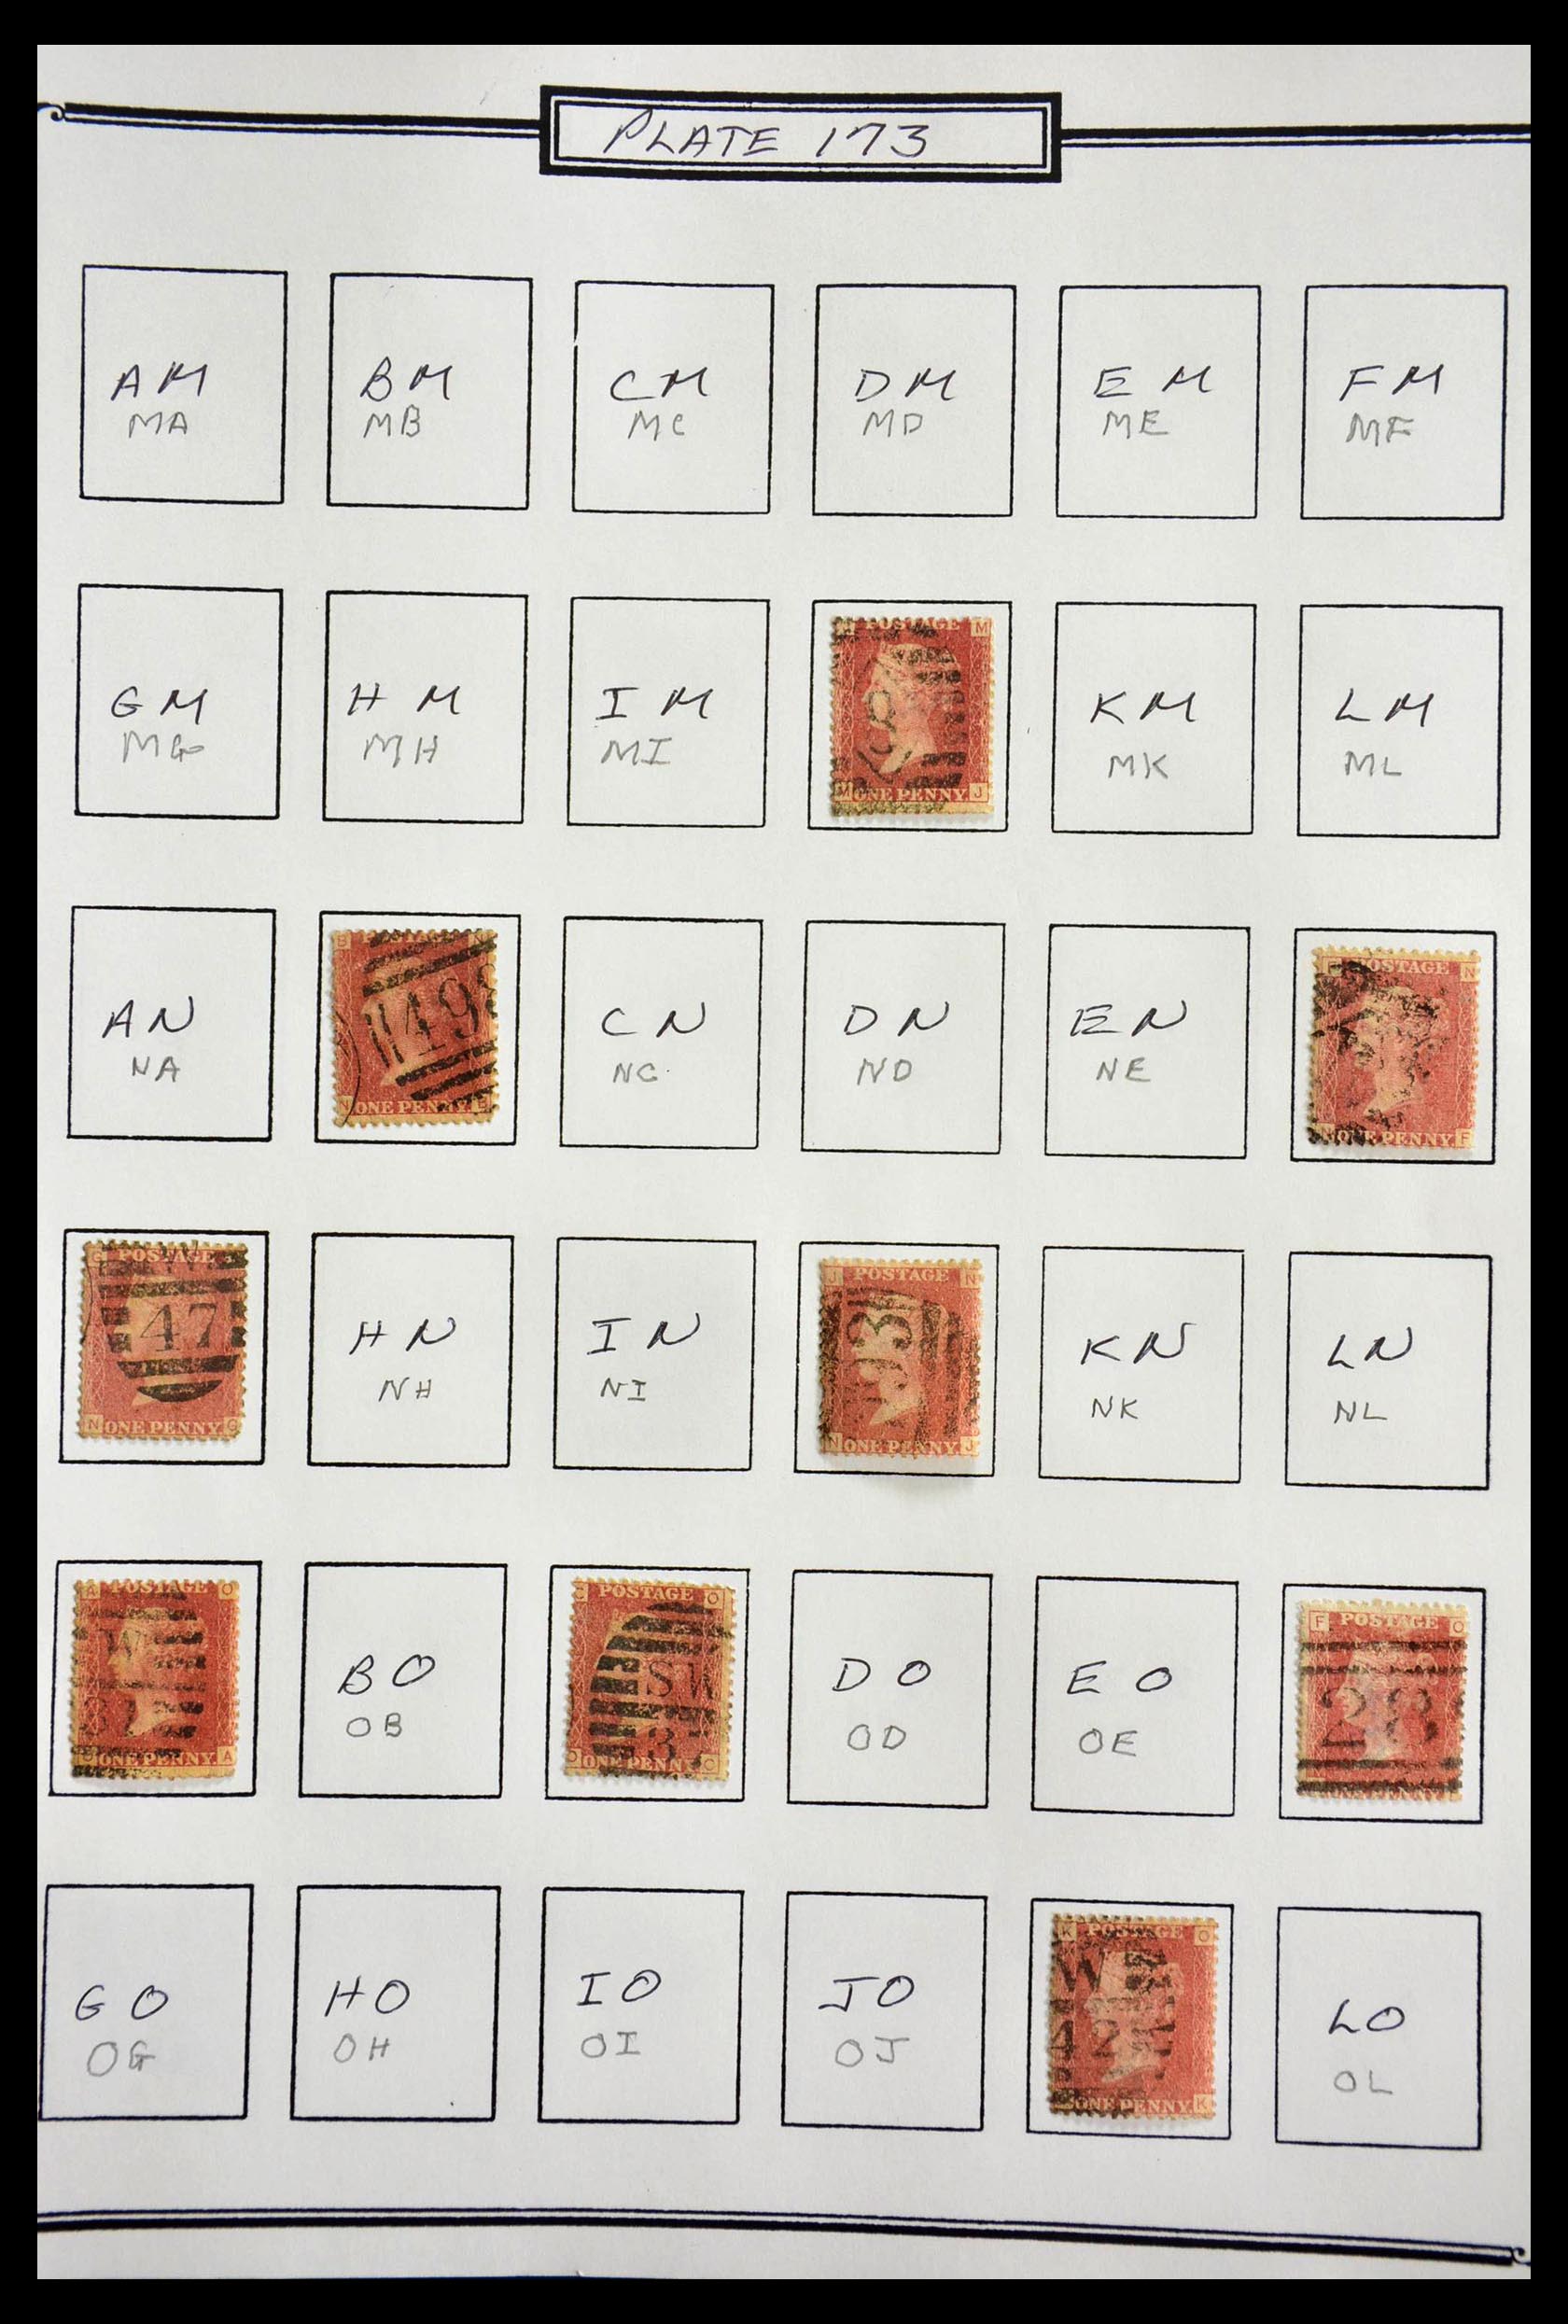 PLATE 173
AM BM CM DM EM FM
MA MB MC MD ME MF
GM HM IM KM LM
MG MH MI MK ML
POSTAGE M
M ONE PENNY J
AN CN DN EN
NA NC ND NE
B POSTAGE N
498
ONE PENNY
POSTAGE N
ONE PENNY F
G POSTAGE
W
47
N ONE PENNY G
HN IN KN LN
NH NI NK NL
J POSTAGE N
93
N ONE PENNY J
A POSTAGE O
W
ONE PENNY A
BO DO EO
OB OD OE
C POSTAGE O
SW
37
O ONE PENNY C
F POSTAGE O
28
ONE PENNY
GO HO IO JO LO
OG OH OI OJ OL
K POSTAGE O
W
42
ONE PENNY K